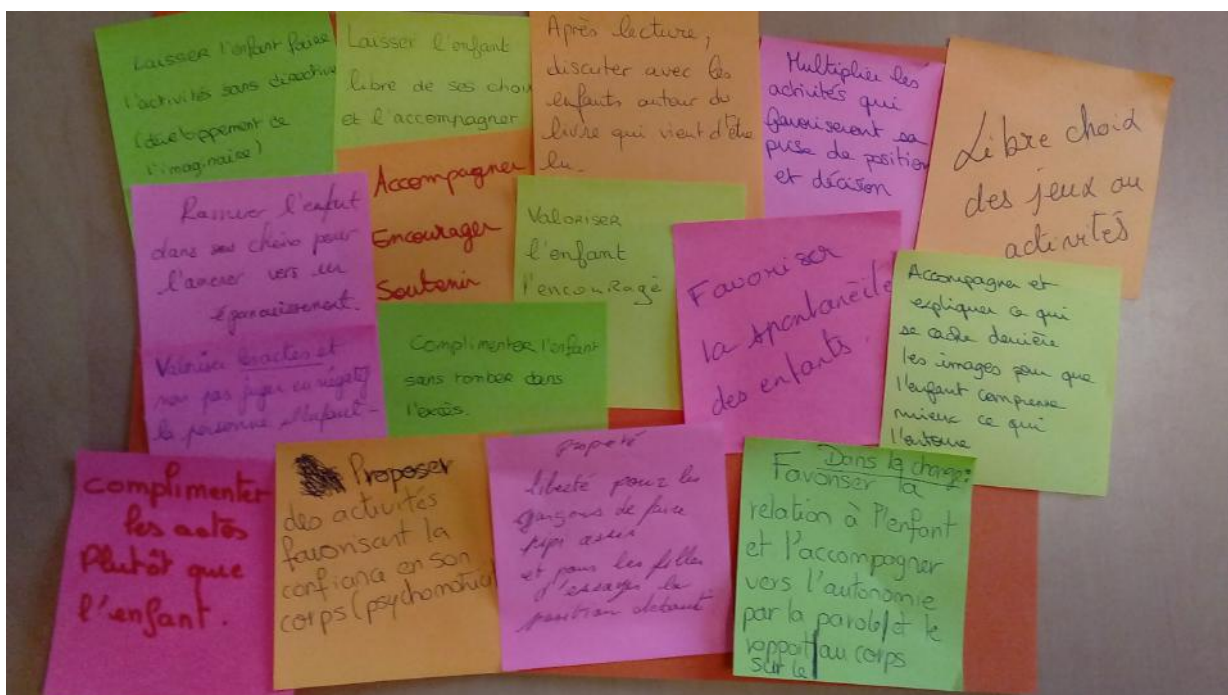 Laisser l'enfant faire
l'activités sans directive
(développement de
l'imaginaire)
Laisser l'enfant
libre de ses choix
et l'accompagner
Après lecture,
discuter avec les
enfants autour du
livre qui vient d'être
lu.
Multiplier les
activités qui
favoriseront sa
prise de position
et décision
Libre choix
des jeux ou
activités
Rassurer l'enfant
dans ses choix pour
l'amener vers un
épanouissement.
Accompagner
Encourager
Soutenir
Valoriser
l'enfant
l'encouragé
Favoriser
la spontanéité
des enfants.
Accompagner et
expliquer ce qui
se cache derrière
les images pour que
l'enfant comprenne
mieux ce qui
l'entoure
Valoriser les actes et
non pas juger en négatif
la personne
Complimenter l'enfant
sans tomber dans
l'excès.
Complimenter
les actes
Plutôt que
l'enfant.
Proposer
des activités
favorisant la
confiance en son
corps (psychomotricité
propreté
Liberté pour les
garçons de faire
pipi assis
et pour les filles
d'essayer la
position debout
Dans le change:
Favoriser la
relation à l'enfant
et l'accompagner
vers l'autonomie
par la parole et le
rapport au corps
sur le